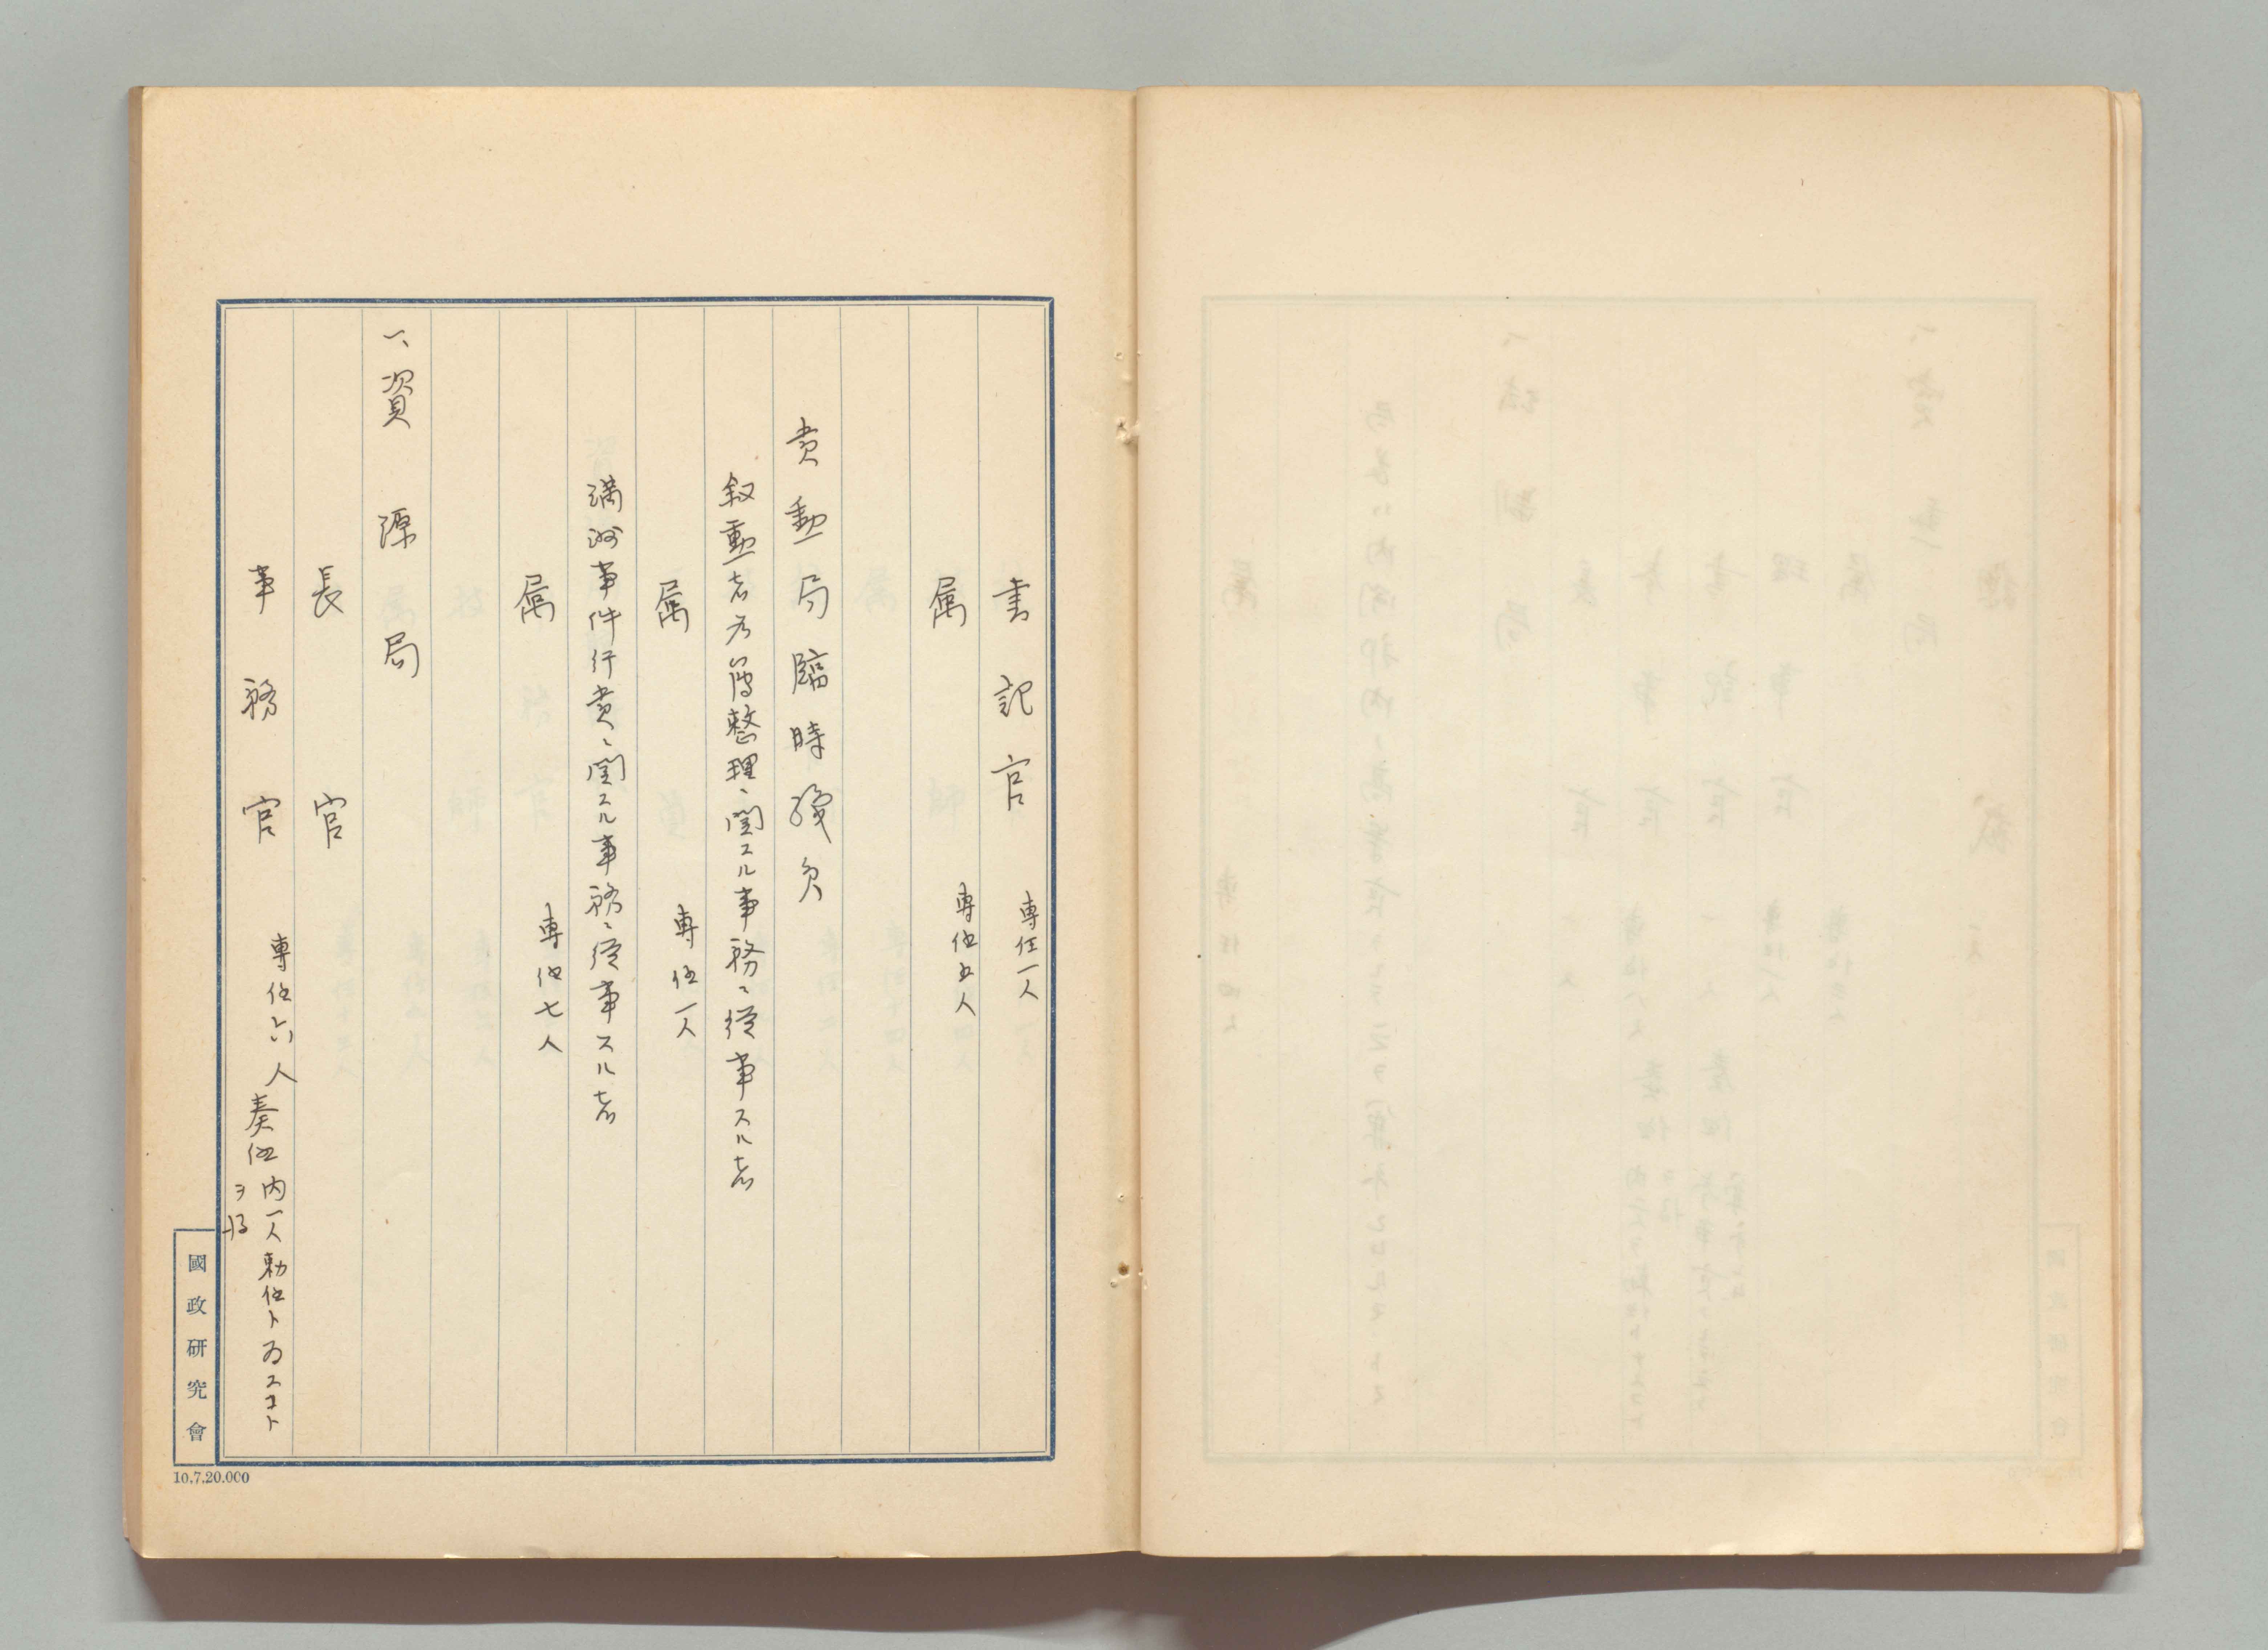 書記官 専任一人
属 専任五人
賞勲局臨時職員
叙勲者名簿整理ニ関スル事務ニ従事スル者
属 専任一人
満洲事件行賞ニ関スル事務ニ従事スル者
属 専任七人
一、資源局
長官
事務官 専任六人 奏任 内一人勅任ト為スコト
ヲ得
國政研究會
10.7.20.000